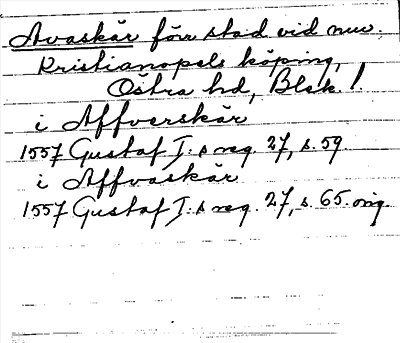 Avaskär förr stad vid nuv.
Kristianopels köping,
Östra hd, Blek.!
i Affverskär
1557 Gustaf I:s reg. 27, s. 59
i Affvaskär
1557 Gustaf I:s reg. 27, s. 65. orig.